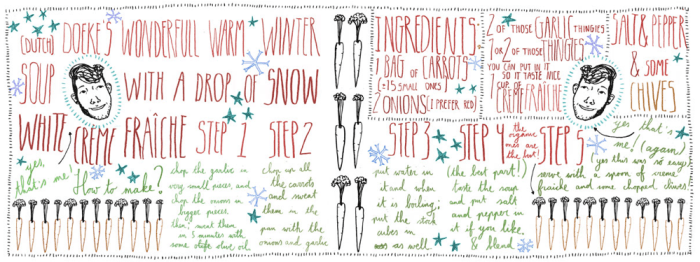 (DUTCH) DOEKE'S WONDERFULL WARM WINTER
SOUP WITH A DROP OF SNOW
WHITE, CRÈME FRAÎCHE
yes,
that's me!
How to make?
STEP 1
chop the garlic in
very small pieces, and
chop the onions in
bigger pieces
then, sweat them
in 5 minutes with
some olijfe olive oil
STEP 2
chop up all
the carrots
and sweat
them in the
pan with the
onions and garlic
INGREDIENTS:
1 BAG OF CARROTS
(=15 SMALL ONES)
2 ONIONS (I PREFER RED)
2 OF THOSE GARLIC THINGIES
1 OR 2 OF THOSE THINGIES
YOU CAN PUT IN IT
SO IT TASTE NICE
1 CUP OF
CRÈME FRAÎCHE
SALT & PEPPER
& SOME
CHIVES
STEP 3
put water in
it and when
it is boiling,
put the stock
cubes in
as well
STEP 4
the
organic
ones are
the best!
(the best part!)
taste the soup
and put salt
and pepper in
it if you like.
& blend
STEP 5
yes that's
me, (again)
(yes this was so easy)
serve with a spoon of creme
fraiche and some chopped chives.